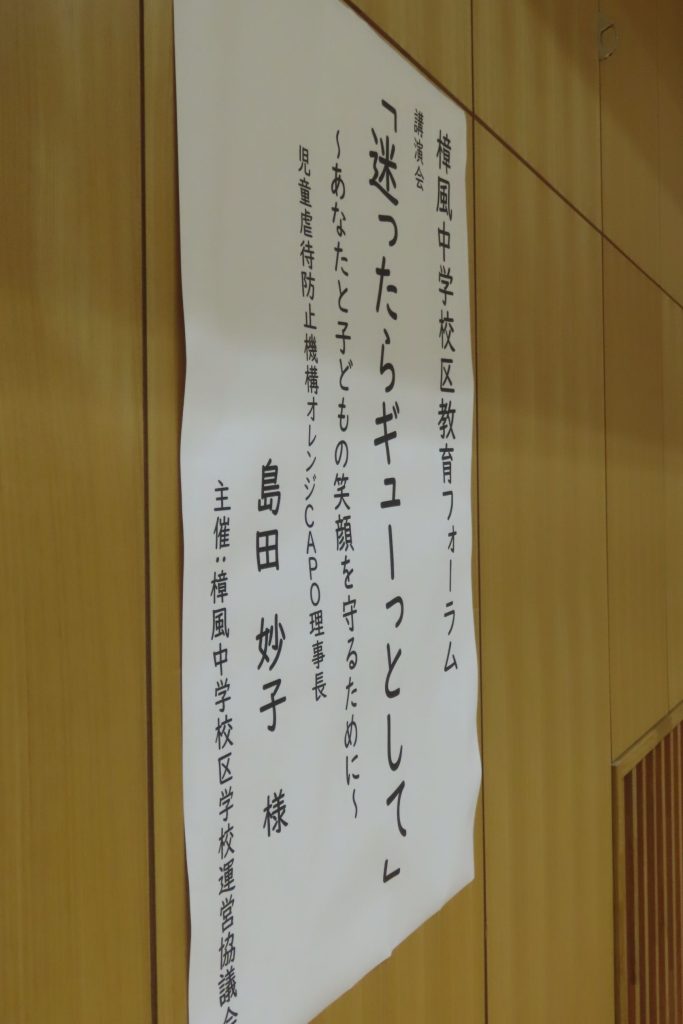 樟風中学校区教育フォーラム
講演会
「迷ったらギューっとして」
～あなたと子どもの笑顔を守るために～
児童虐待防止機構オレンジCAPO理事長
島田 妙子 様
主催:樟風中学校区学校運営協議会